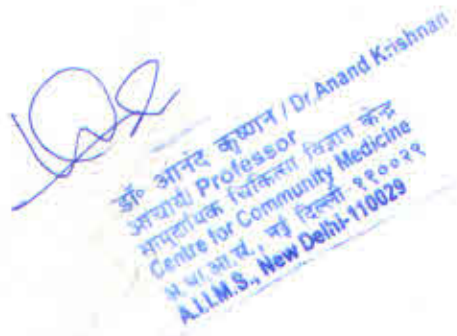 डॉ० आनंद कृष्णन / Dr. Anand Krishnan
आचार्य/ Professor
सामुदायिक चिकित्सा विज्ञान केन्द्र
Centre for Community Medicine
अ.भा.आ.सं., नई दिल्ली-११००२९
A.I.I.M.S., New Delhi-110029